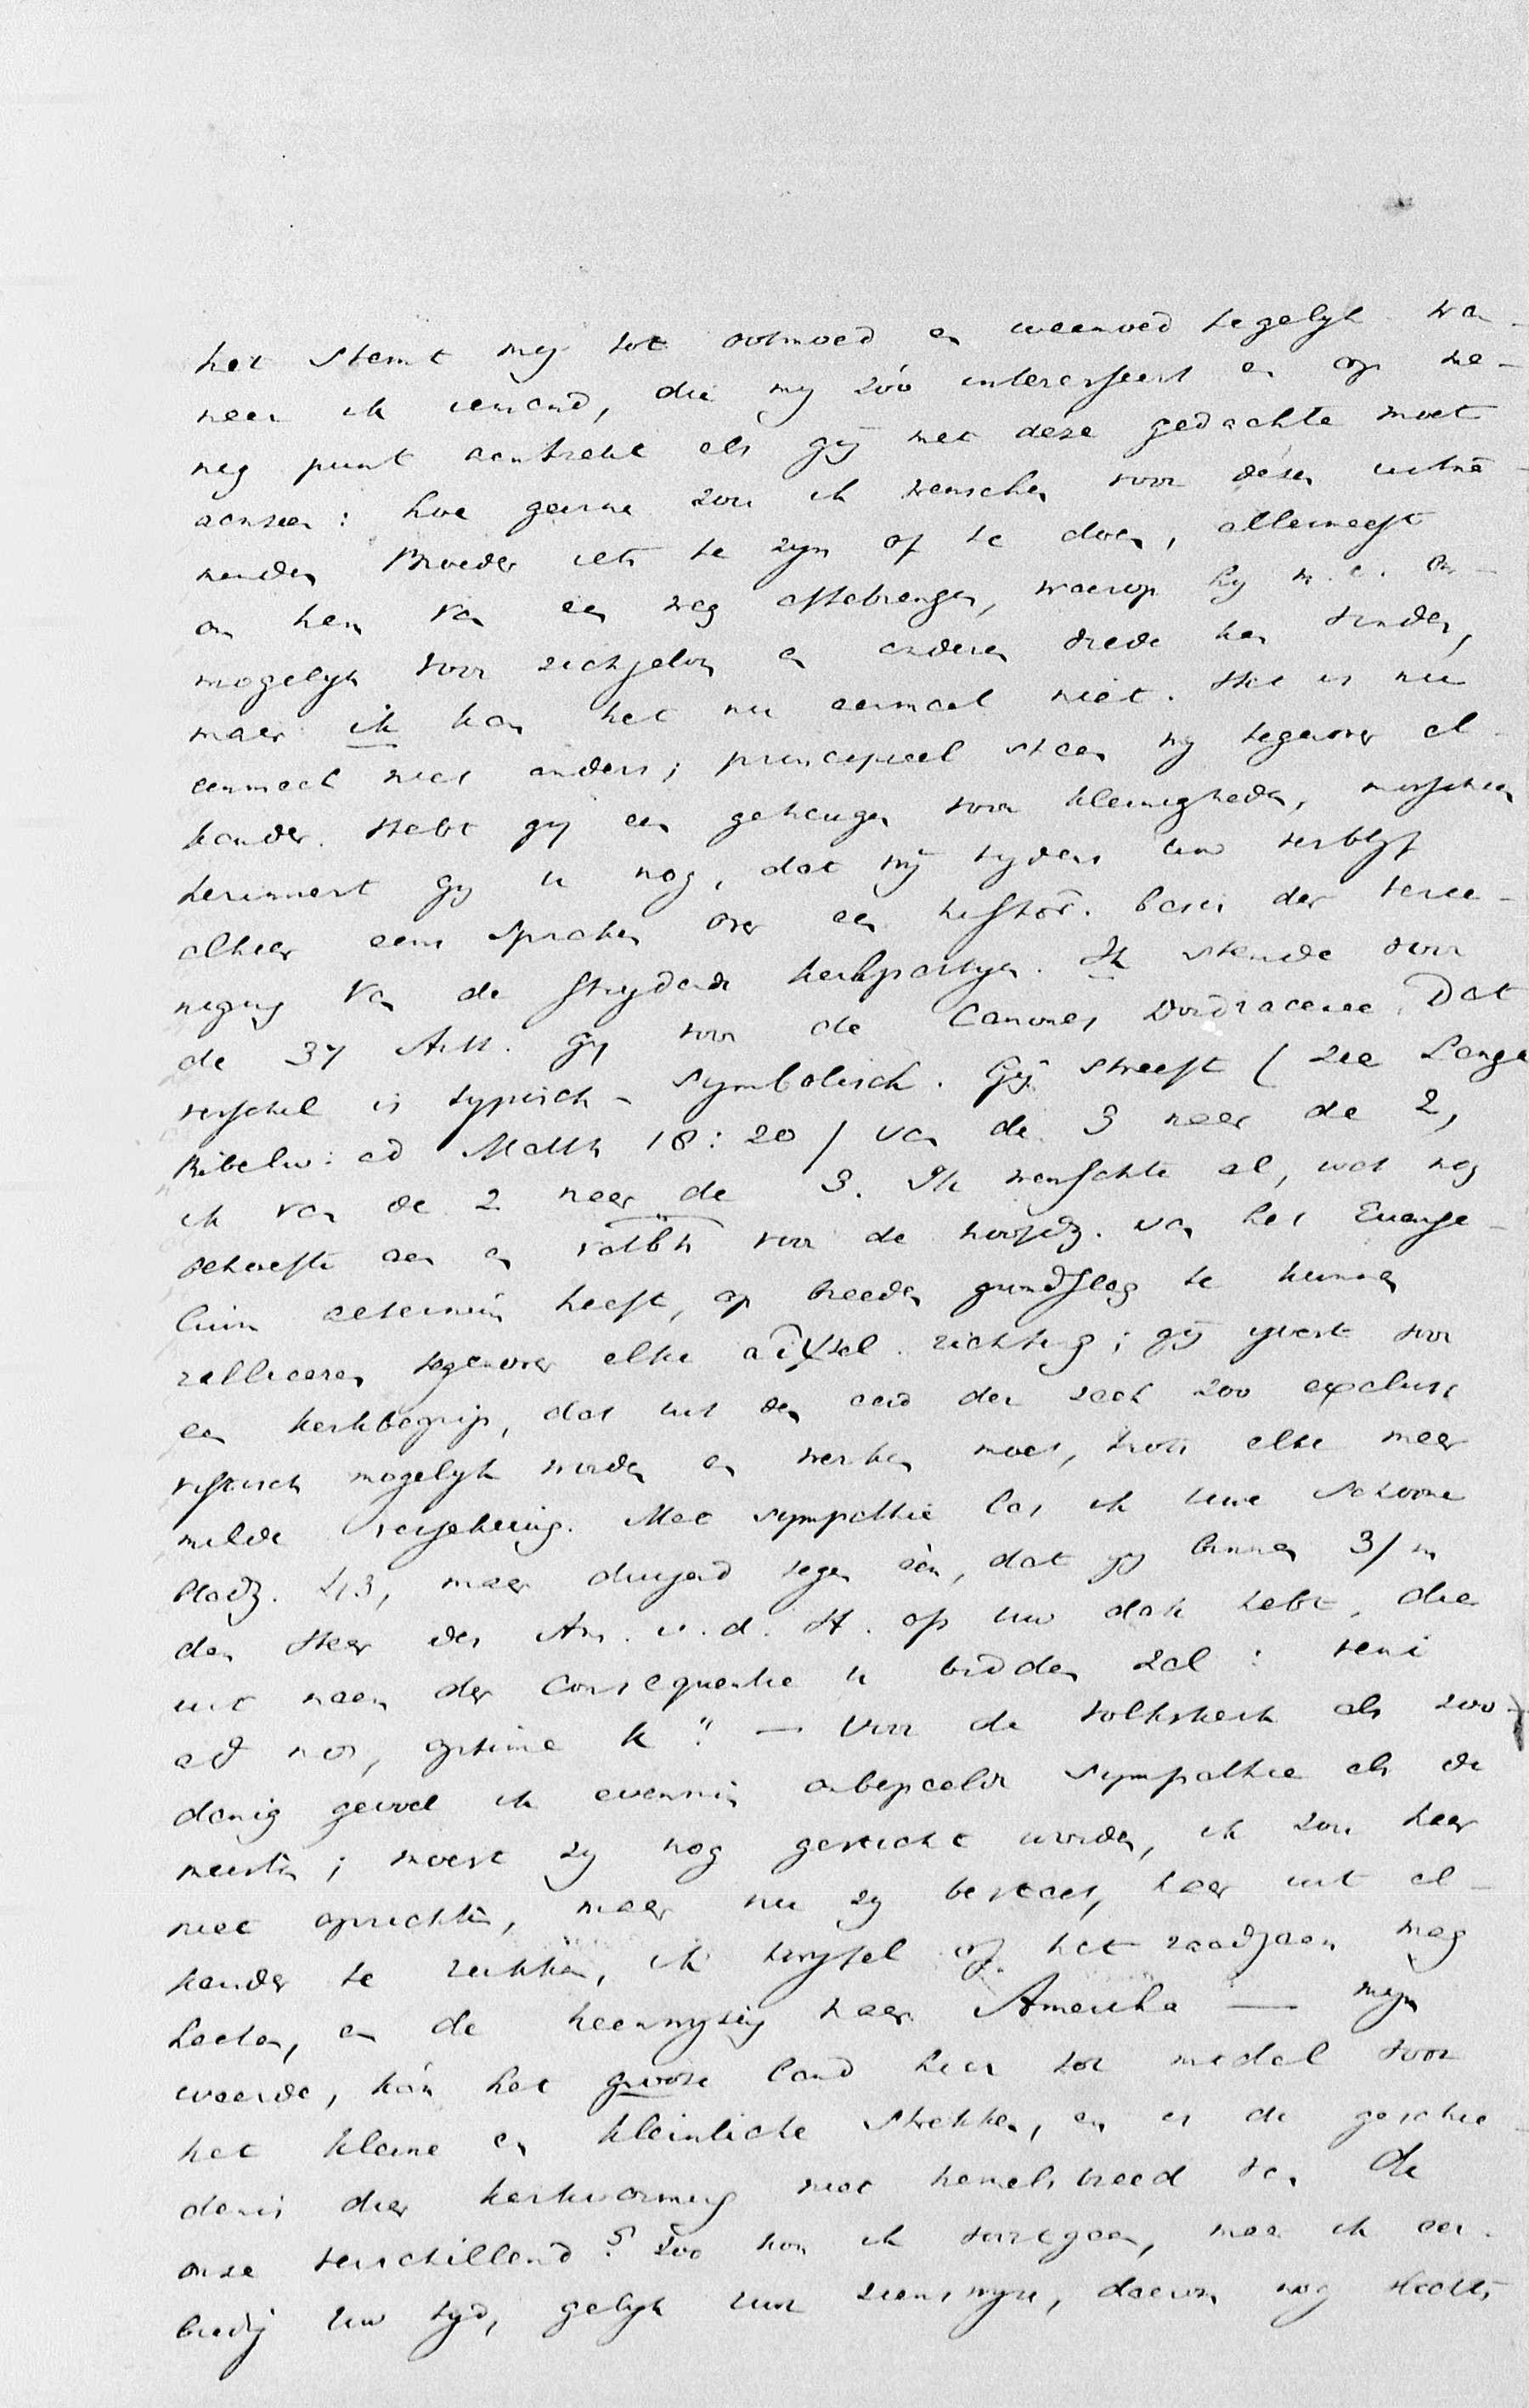 het stemt my tot ootmoed en weemoed tegelyk wan-
neer ik iemand, die my zóó interesseert en op me-
nig punt aantrekt als gij met déze gedachte moet
aanzien: hoe gaarne zou ik wenschen voor dézen uitne-
menden Broeder iets te zyn of te doen, allermeest
om hem van een weg aftebrengen, waarop hy m.i. on-
mogelyk voor zichzelven en anderen vrede kan vinden,
maar ik kan het nu eenmaal niet. Het is nu
eenmaal niet anders; principieel staan wy tegenover el-
kander. Hebt gy een geheugen voor kleinigheden, misschien
herinnert gy u nog, dat wij tydens uw verblyf
alhier eens spraken over een histor. basis der veree-
niging van de strydende kerkpartyen. Ik stemde voor
de 37 Artt. gy voor de Canones Dordraceni. Dat
verschil is typisch-symbolisch. Gij streeft (zie Lange
Bibelw: ad Matth 18:20) van de 3 naar de 2,
ik van de 2 naar de 3. Ik wenschte al, wat nog
behoefte aan en voor de hoofdz. van het Evange-
lium aeternum heeft, op breeden grondslag te kunnen
ralliëeren tegenover elke richting; gij yvert voor
een kerkbegrip, dat uit den aard der zaak zoo exclusi-
vistisch mogelyk worden en werken moet, trots elke meer
milde verzekering. Met sympathie las ik uwe schoone
bladz. 213, maar duizend tegen één, dat gy binnen 3/m
den Heer der Am. v. d. H. op uw dak hebt, die
uit naam der consequentie u bidden zal: "veni
ad nos, optime K" — Voor de volkskerk als zoo-
danig gevoel ik evenmin onbepaalde sympathie als de
meesten; moest zy nog gesticht worden, ik zou haar
niet oprichten, maar nu zy bestaat, haar uit el-
kander te rukken, ik twyfel of het raadzaam mag
heeten, en de heenwyzing naar Amerika — myn
waarde, kán het groote land hier tot model voor
het kleine en kleinliche strekken, en is de geschie-
denis dier kerkvorming niet hemelsbreed van de
onze verschillend? Zoo kon ik voortgaan, maar ik eer-
biedig Uw tyd, gelyk uwe zienswyze, daarom nog slechts